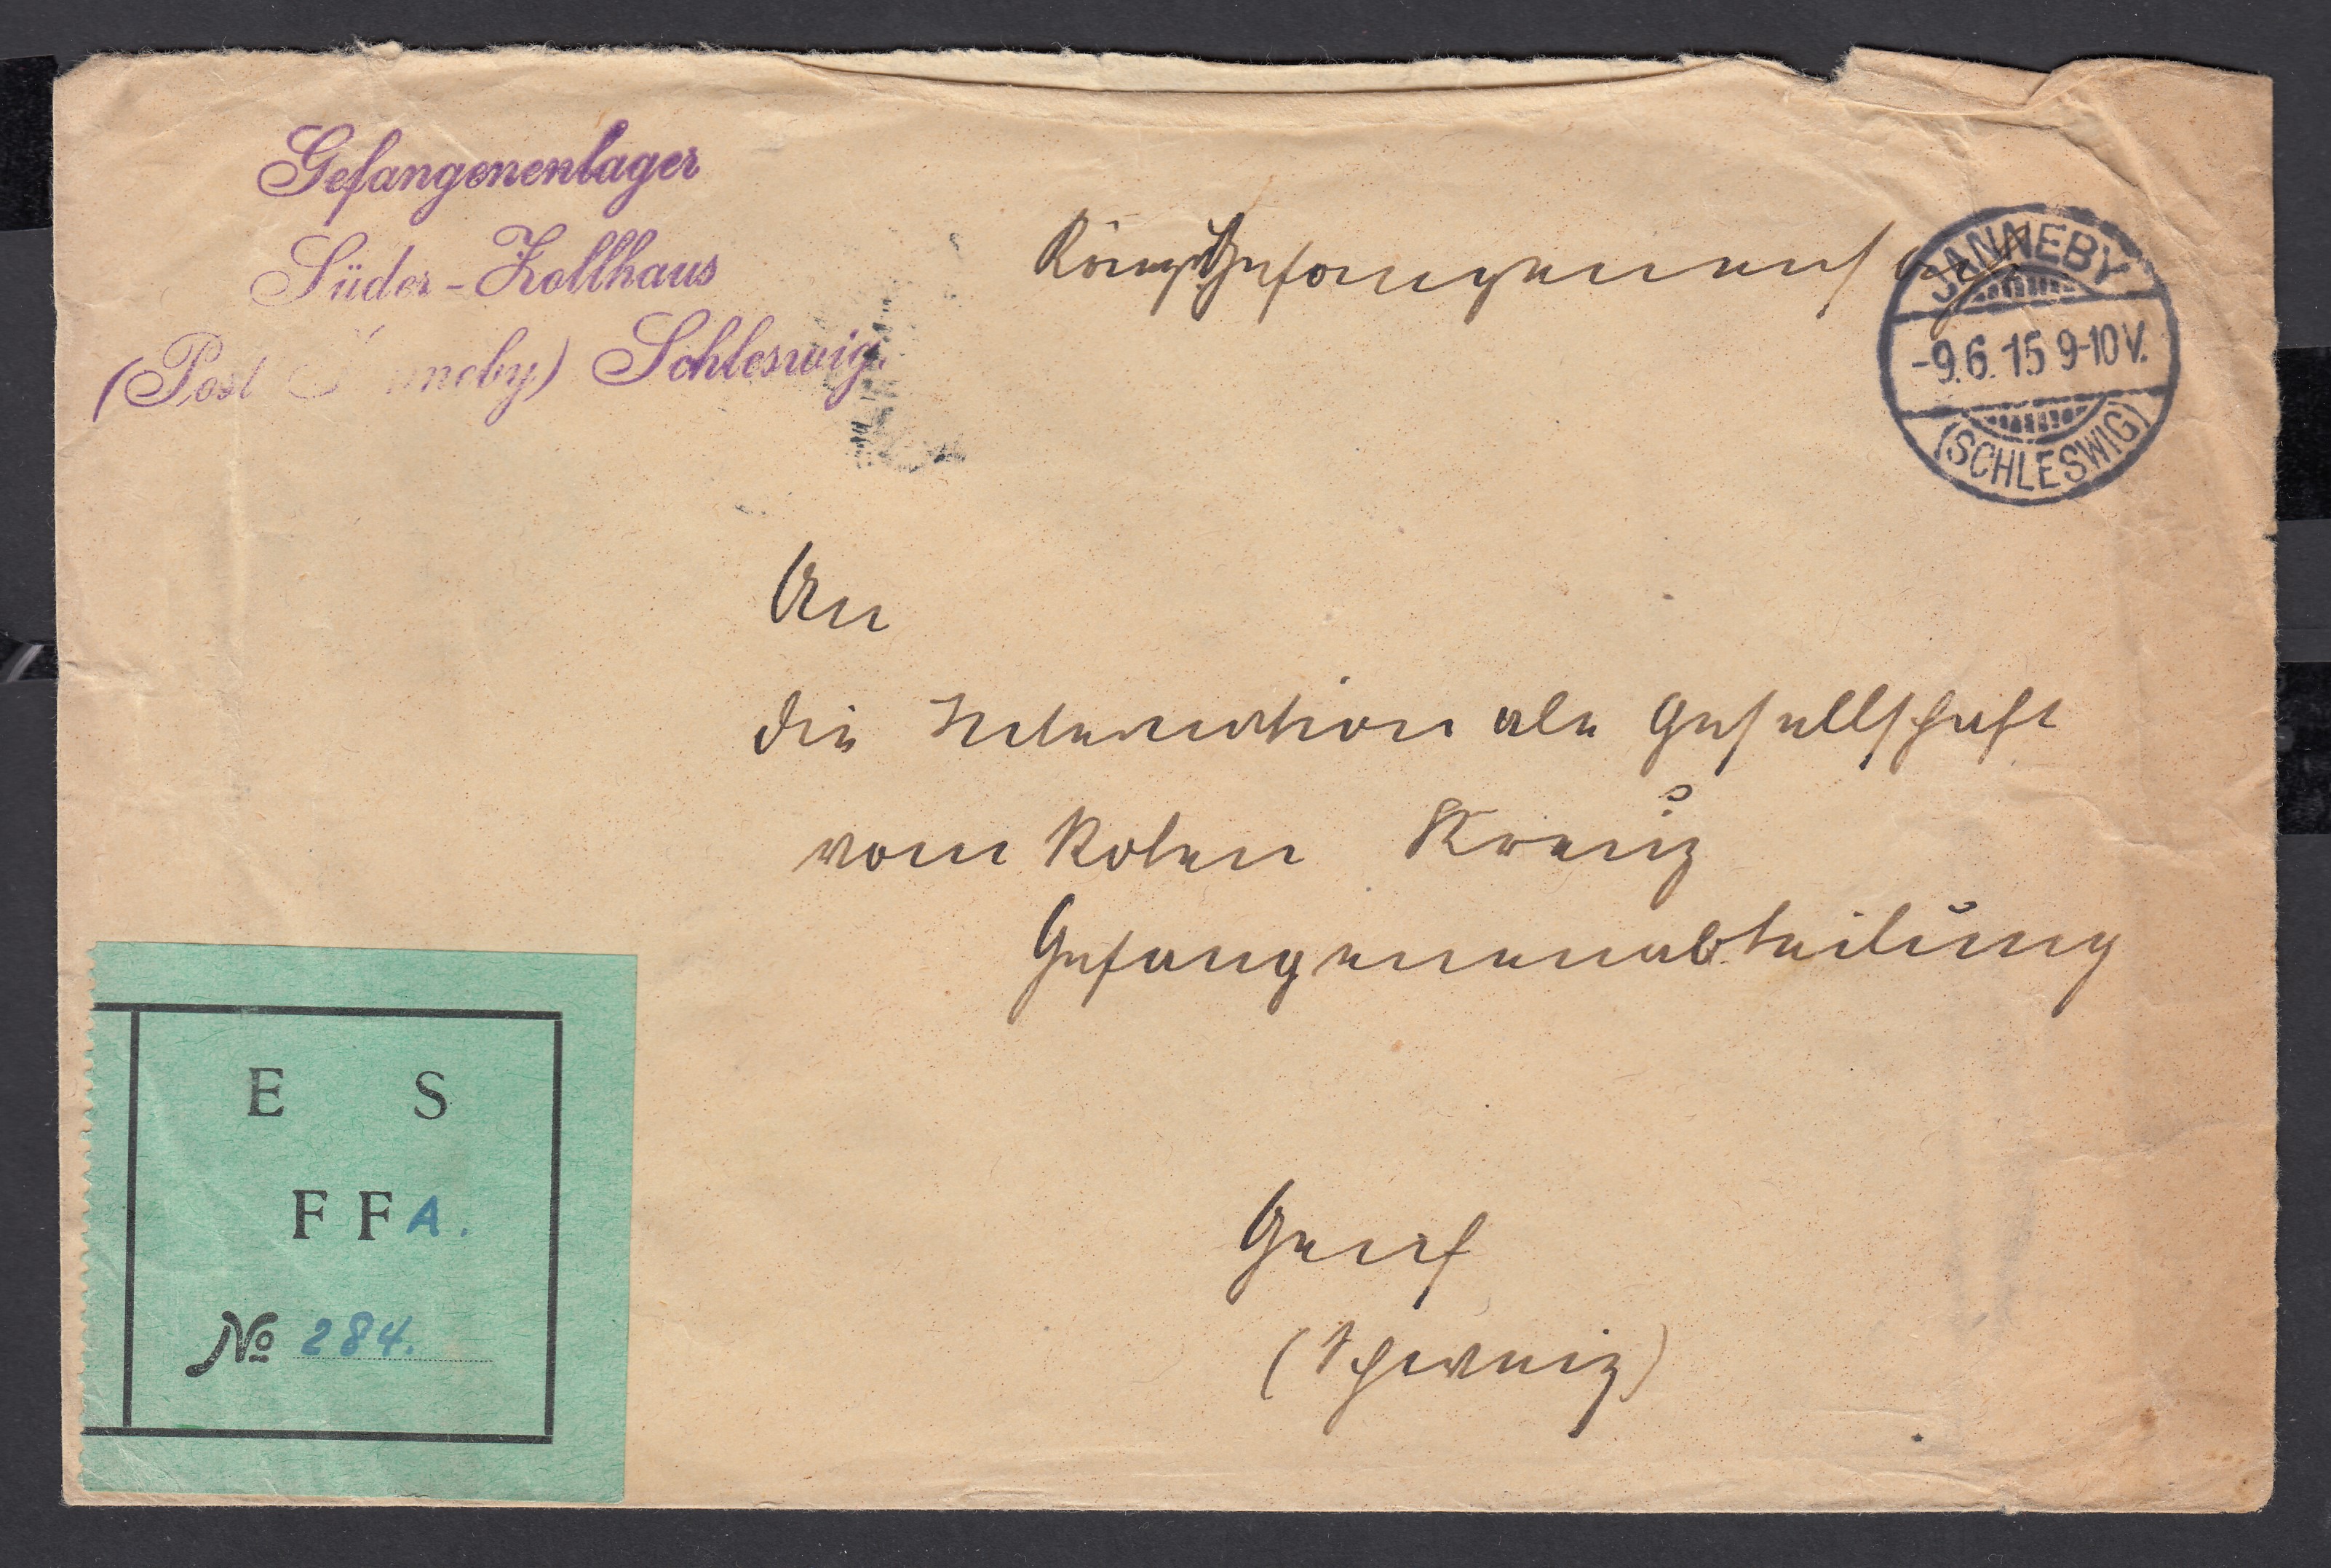 Gefangenenlager
Süder-Zollhaus
(Post Janneby) Schleswig.
JANNEBY
-9.6.15 9-10V.
(SCHLESWIG)
An
die Internationale Gesellschaft
vom Roten Kreuz
Gefangenenabteilung
Genf
(Schweiz)
E S
F F A.
No 284.